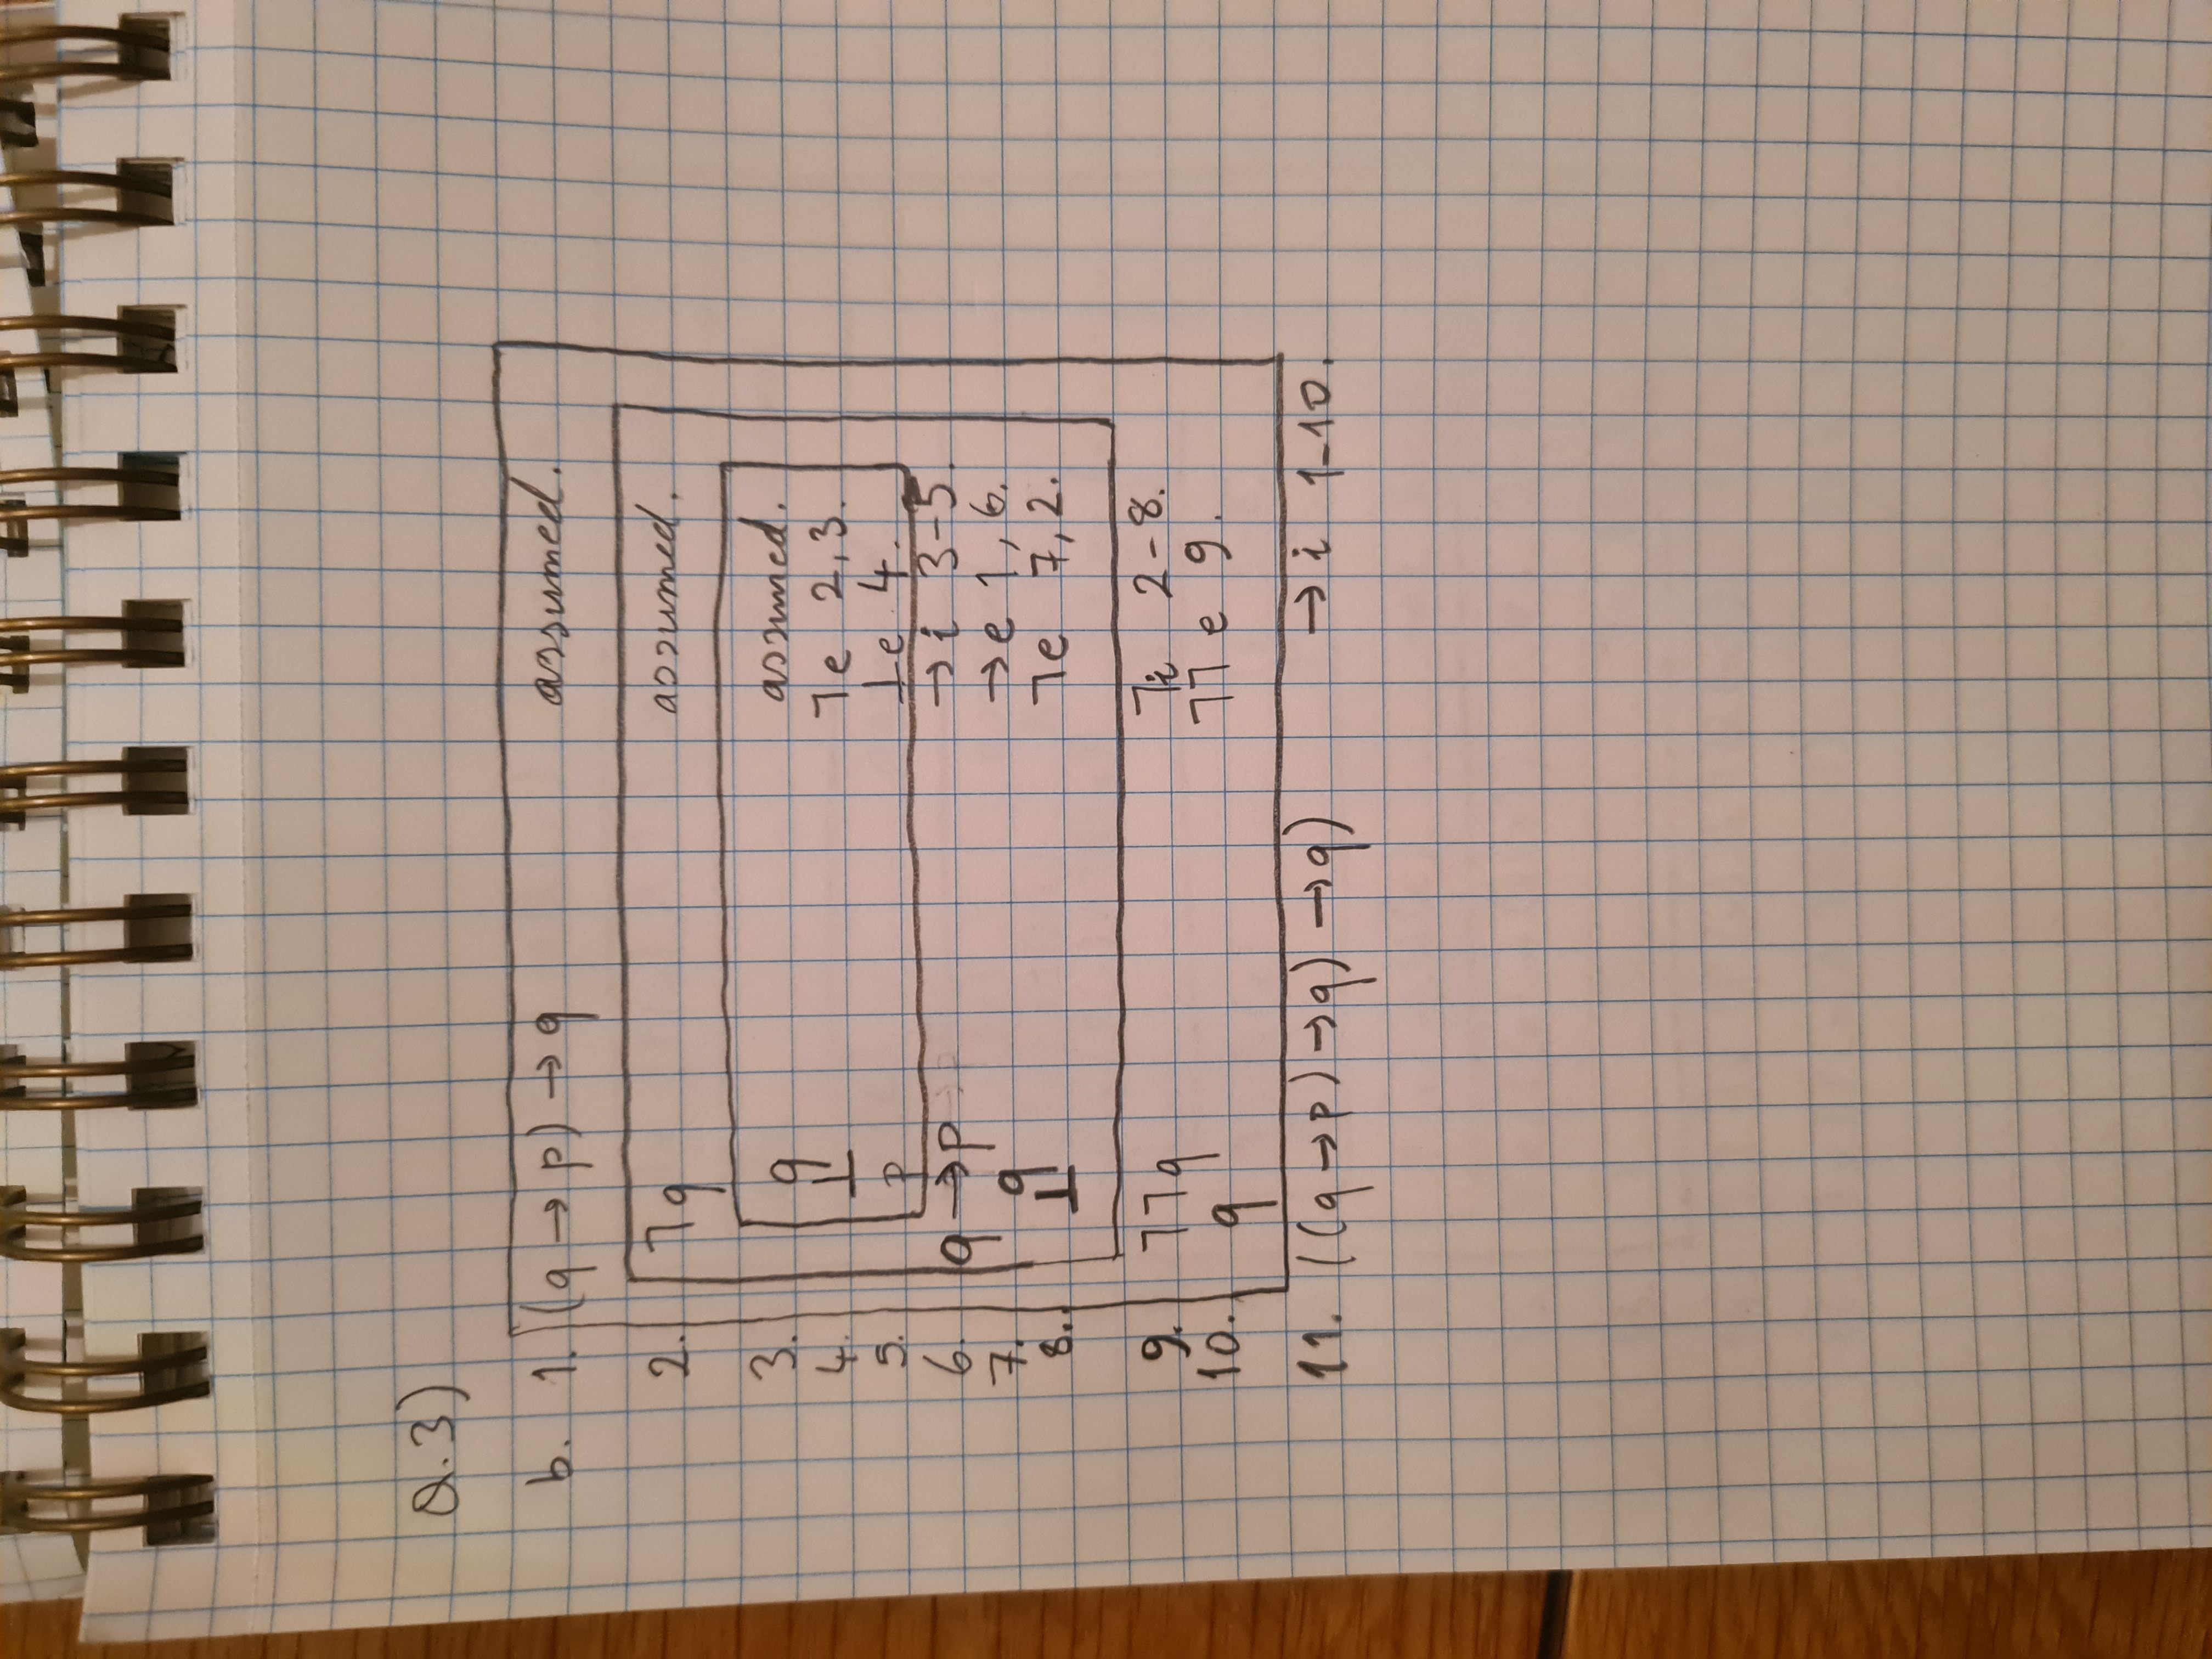 Q.3)
b. 1. (q → p) → q assumed.
2. ¬q assumed.
3. q assumed.
4. ⊥ ¬e 2,3.
5. p ⊥e 4.
6. q → p →i 3-5.
7. q →e 1,6.
8. ⊥ ¬e 7,2.
9. ¬¬q ¬i 2-8.
10. q ¬¬e 9.
11. ((q → p) → q) → q) →i 1-10.